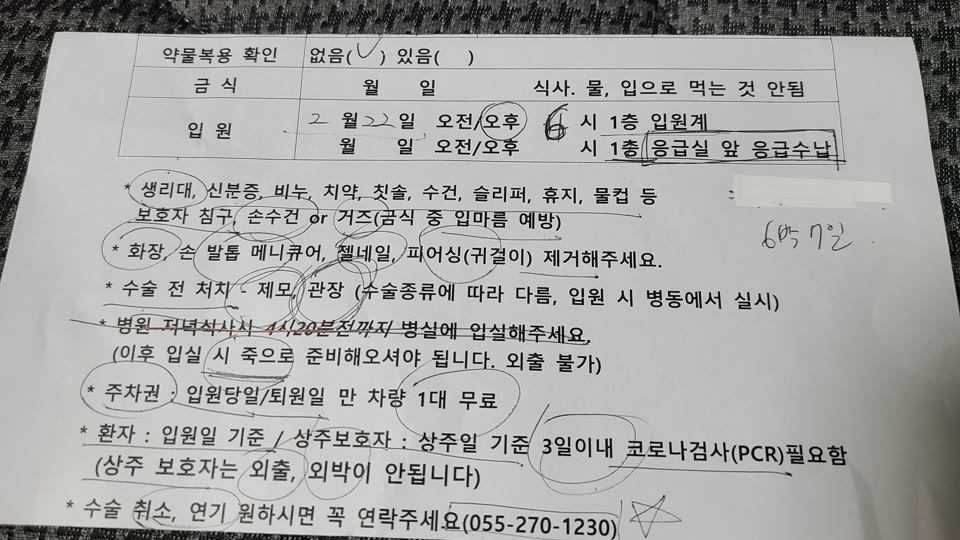 약물복용 확인 없음(V) 있음( )
금 식 월 일 식사. 물, 입으로 먹는 것 안됨
입 원 2월 22일 오전/오후 6시 1층 입원계
월 일 오전/오후 시 1층 응급실 앞 응급수납
* 생리대, 신분증, 비누, 치약, 칫솔, 수건, 슬리퍼, 휴지, 물컵 등
보호자 침구, 손수건 or 거즈(금식 중 입마름 예방)
6박 7일
* 화장, 손 발톱 메니큐어, 젤네일, 피어싱(귀걸이) 제거해주세요.
* 수술 전 처치 - 제모, 관장 (수술종류에 따라 다름, 입원 시 병동에서 실시)
* 병원 저녁식사시 4시20분전까지 병실에 입실해주세요.
(이후 입실 시 죽으로 준비해오셔야 됩니다. 외출 불가)
* 주차권 : 입원당일/퇴원일 만 차량 1대 무료
* 환자 : 입원일 기준 / 상주보호자 : 상주일 기준 3일이내 코로나검사(PCR)필요함
(상주 보호자는 외출, 외박이 안됩니다)
* 수술 취소, 연기 원하시면 꼭 연락주세요(055-270-1230)